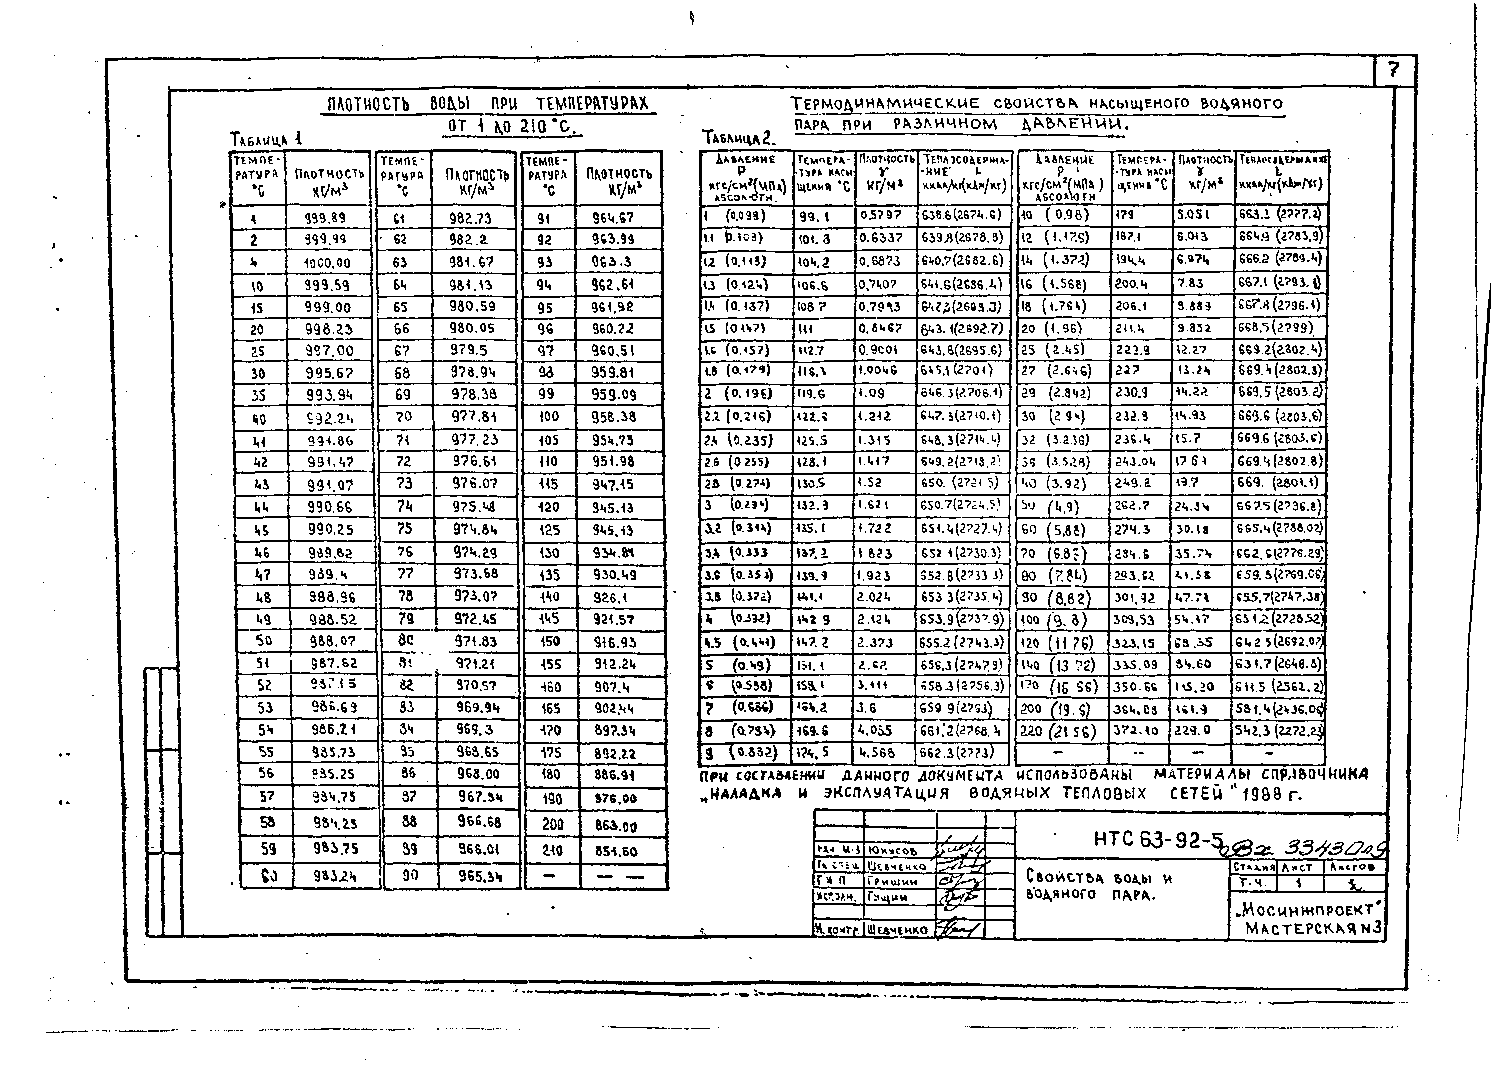 7
ПЛОТНОСТЬ ВОДЫ ПРИ ТЕМПЕРАТУРАХ
ОТ 1 ДО 210 °С.
ТАБЛИЦА 1
ТЕМПЕ- ПЛОТНОСТЬ ТЕМПЕ- ПЛОТНОСТЬ ТЕМПЕ- ПЛОТНОСТЬ
РАТУРА КГ/М³ РАТУРА КГ/М³ РАТУРА КГ/М³
°С °С °С
1 999.89 61 982.73 91 964.67
2 999.99 62 982.2 92 963.99
4 1000.00 63 981.67 93 963.3
10 999.59 64 981.13 94 962.61
15 999.00 65 980.59 95 961.92
20 998.23 66 980.05 96 960.22
25 997.00 67 979.5 97 960.51
30 995.67 68 978.94 98 959.81
35 993.94 69 978.38 99 959.09
40 992.24 70 977.81 100 958.38
41 991.86 71 977.23 105 954.73
42 991.47 72 976.61 110 951.98
43 991.07 73 976.07 115 947.15
44 990.66 74 975.48 120 945.13
45 990.25 75 974.84 125 945.13
46 989.82 76 974.29 130 934.81
47 989.4 77 973.68 135 930.49
48 988.96 78 973.07 140 926.1
49 988.52 79 972.45 145 921.57
50 988.07 80 971.83 150 916.93
51 987.62 81 971.21 155 912.24
52 82 970.57 160 907.4
53 986.69 83 969.94 165 902.44
54 986.21 84 969.3 170 897.34
55 985.73 85 968.65 175 892.22
56 985.25 86 968.00 180 886.91
57 984.75 87 967.34 190 876.00
58 984.25 88 966.68 200 863.00
59 983.75 89 966.01 210 851.60
60 983.24 90 965.34 — — —
ТЕРМОДИНАМИЧЕСКИЕ СВОЙСТВА НАСЫЩЕНОГО ВОДЯНОГО
ПАРА ПРИ РАЗЛИЧНОМ ДАВЛЕНИИ.
ТАБЛИЦА 2.
ДАВЛЕНИЕ ТЕМПЕРА- ПЛОТНОСТЬ ТЕПЛОСОДЕРЖА- ДАВЛЕНИЕ ТЕМПЕРА- ПЛОТНОСТЬ ТЕПЛОСОДЕРЖАНИЕ
Р -ТУРА НАСЫ- γ -НИЕ L Р -ТУРА НАСЫ- γ L
КГС/СМ²(МПА) ЩЕНИЯ °С КГ/М³ ККАЛ/КГ(КДЖ/КГ) КГС/СМ²(МПА) ЩЕНИЯ °С КГ/М³ ККАЛ/КГ(КДЖ/КГ)
АБСОЛЮТН. АБСОЛЮТН
1 (0.098) 99.1 0.5797 638.8(2674.6) 10 (0.98) 179 5.051 663.2 (2777.2)
1.1 (0.108) 101.8 0.6337 639.8(2678.8) 12 (1.176) 187.1 6.013 664.9 (2783.9)
1.2 (0.118) 104.2 0.6873 640.7(2682.6) 14 (1.372) 194.4 6.974 666.2 (2789.4)
1.3 (0.124) 106.6 0.7407 641.6(2686.4) 16 (1.568) 200.4 7.83 667.1 (2793.1)
1.4 (0.137) 108.7 0.7943 18 (1.764) 206.1 8.889 667.8 (2796.1)
1.5 (0.147) 111 0.8467 643.1(2692.7) 20 (1.96) 211.4 9.852 668.5 (2799)
1.6 (0.157) 112.7 0.9001 643.8(2695.6) 25 (2.45) 222.9 12.27 669.2 (2802.4)
1.8 (0.179) 116.3 1.0046 645.1(2701) 27 (2.646) 227 13.24 669.4 (2802.8)
2 (0.196) 119.6 1.09 646.3(2706.1) 29 (2.842) 230.9 14.22 669.5 (2803.2)
2.2 (0.216) 122.6 1.212 647.3(2710.1) 30 (2.94) 232.8 14.93 669.6 (2803.6)
2.4 (0.235) 125.5 1.315 648.3(2714.4) 32 (3.236) 236.4 15.7 669.6 (2803.6)
2.6 (0.255) 128.1 1.417 649.2(2718.2) 36 (3.528) 243.04 17.61 669.4 (2802.8)
2.8 (0.274) 130.5 1.52 650. (2721.5) 40 (3.92) 249.2 19.7 669. (2801.1)
3 (0.294) 132.9 1.621 650.7(2724.5) 50 (4.9) 262.7 24.94
3.2 (0.314) 135.1 1.722 651.4(2727.4) 60 (5.88) 274.3 30.18 665.4(2788.02)
3.4 (0.333 137.2 1.823 652.1(2730.3) 70 (6.86) 284.6 35.74 662.6(2776.29)
3.6 (0.353) 139.9 1.923 652.8(2733.3) 80 (7.84) 293.62 41.58 659.3(2769.06)
3.8 (0.372) 141.1 2.024 653.3(2735.4) 90 (8.82) 301.92 47.71 655.7(2747.38)
4 (0.392) 142.9 2.124 653.9(2737.9) 100 (9.8) 309.53 54.17 651.2(2728.52)
4.5 (0.441) 147.2 2.373 655.2(2743.3) 120 (11.76) 323.15 68.35 642.5(2692.07)
5 (0.49) 151.1 2.62 656.3(2747.9) 140 (13.72) 335.09 84.60 631.7(2646.8)
6 (0.588) 158.1 3.111 658.3(2756.3) 170 (16.66) 350.66 115.20 611.5 (2562.2)
7 (0.686) 164.2 3.6 659.9(2763) 200 (19.6) 364.08 161.9 581.4(2436.06)
8 (0.784) 169.6 4.085 661.2(2768.4 220 (21.56) 372.10 229.0 542.3 (2272.23)
9 (0.882) 174.5 4.568 662.3(2773) — — — —
ПРИ СОСТАВЛЕНИИ ДАННОГО ДОКУМЕНТА ИСПОЛЬЗОВАНЫ МАТЕРИАЛЫ СПРАВОЧНИКА
„НАЛАДКА И ЭКСПЛУАТАЦИЯ ВОДЯНЫХ ТЕПЛОВЫХ СЕТЕЙ" 1988 г.
НТС 63-92-5
Вх 3343
НАЧ М-3 ЮНУСОВ
ГЛ СПЕЦ ШЕВЧЕНКО
ГИП ГРИШИН
ИСПОЛН. ГУЩИН
Н.КОНТР ШЕВЧЕНКО
СВОЙСТВА ВОДЫ И
ВОДЯНОГО ПАРА.
СТАДИЯ ЛИСТ ЛИСТОВ
Т.Ч. 1
„МОСИНЖПРОЕКТ"
МАСТЕРСКАЯ N3